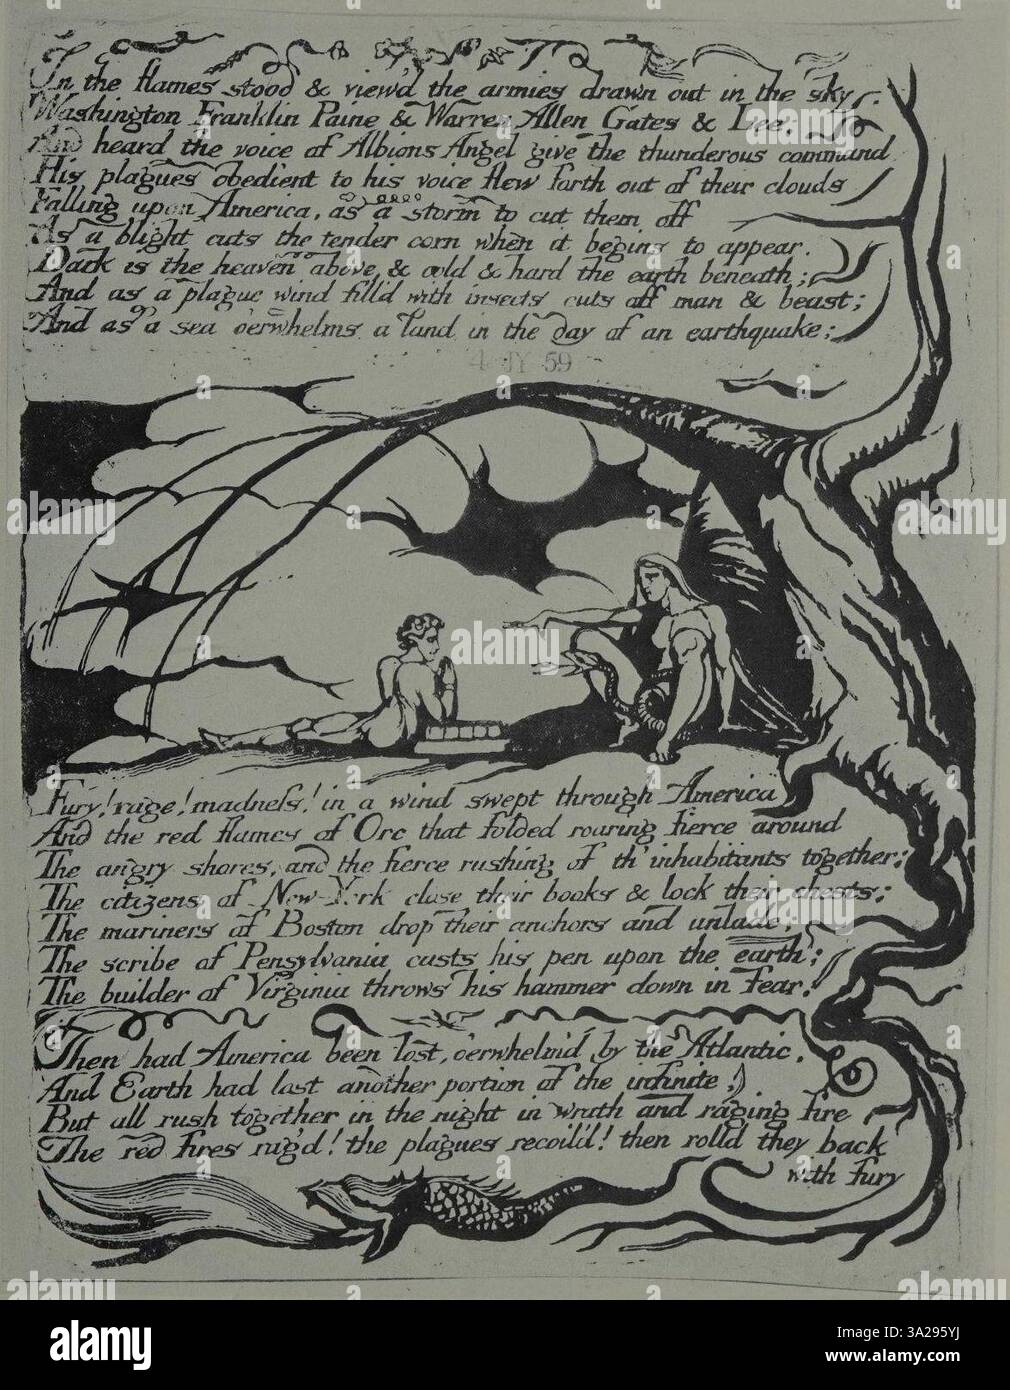 In the flames stood & view'd the armies drawn out in the sky
Washington Franklin Paine & Warren Allen Gates & Lee:
And heard the voice of Albions Angel give the thunderous command:
His plagues obedient to his voice flew forth out of their clouds
Falling upon America, as a storm to cut them off
As a blight cuts the tender corn when it begins to appear.
Dark is the heaven above, & cold & hard the earth beneath;
And as a plague wind fill'd with insects cuts off man & beast;
And as a sea o'erwhelms a land in the day of an earthquake:
4 JY 59
Fury! rage! madness! in a wind swept through America
And the red flames of Orc that folded roaring fierce around
The angry shores, and the fierce rushing of th' inhabitants together:
The citizens of New-York close their books & lock their chests;
The mariners of Boston drop their anchors and unlade;
The scribe of Pensylvania casts his pen upon the earth;
The builder of Virginia throws his hammer down in fear.
Then had America been lost, o'erwhelm'd by the Atlantic,
And Earth had lost another portion of the infinite,
But all rush together in the night in wrath and raging fire
The red fires rag'd! the plagues recoil'd! then rolld they back
with fury
alamy
Image ID: 3A295YJ
www.alamy.com